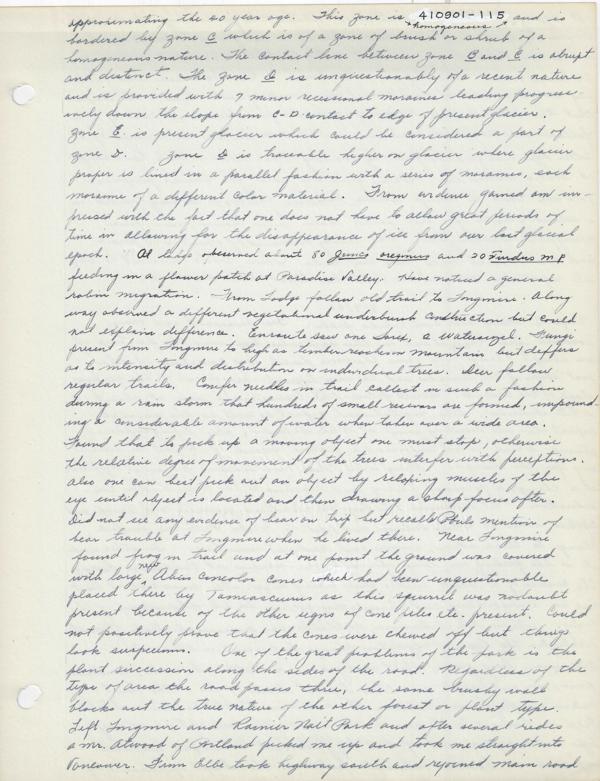 approximating the 20 year age. This zone is 410901-115 and is
homogeneous
bordered by zone C which is of a zone of brush or shrub of a
homogeneous nature. The contact line between zone B and C is abrupt
and distinct. The zone D is unquestionably of a recent nature
and is provided with 7 minor recessional moraines leading progres-
sively down the slope from C-D contact to edge of present glacier.
Zone E. is present glacier which could be considered a part of
zone D. Zone D is traceable higher on glacier where glacier
proper is lined in a parallel fashion with a series of moraines, each
moraine of a different color material. From evidence gained am im-
pressed with the fact that one does not have to allow great periods of
time in allowing for the disappearance of ice from our last glacial
epoch. At lodge observed about 50 Junco oreganus and 20 Turdus m p
feeding in a flower patch at Paradise Valley. Have noticed a general
robin migration. From Lodge follow old trail to Longmire. Along
way observed a different vegetational underbrush construction but could
not explain difference. Enroute saw one Sorex, a Watersouzel. Fungi
present from Longmire to high as timber reaches on mountain but differs
as to intensity and distribution on individual trees. Deer follow
regular trails. Conifer needles in trail collect in such a fashion
during a rain storm that hundreds of small resevoirs are formed, impound-
ing a considerable amount of water when taken over a wide area.
Found that to pick up a moving object one must stop, otherwise
the relative degree of movement of the trees interfer with perceptions.
Also one can best pick out an object by relaxing muscles of the
eye until object is located and then drawing a sharp focus after.
Did not see any evidence of bear on trip but recalls Pauls mention of
bear trouble at Longmire when he lived there. Near Longmire
found frog in trail and at one point the ground was covered
with large new Abies concolor cones which had been unquestionable
placed there by Tamiasciurus as this squirrel was nodoubt
present because of the other signs of cone piles etc. present. Could
not positively prove that the cones were chewed off but things
look suspicious. One of the great problems of the park is the
plant succession along the sides of the road. Regardless of the
type of area the road passes thru, the same brushy wall
blocks out the true nature of the other forest or plant type.
Left Longmire and Rainier Nat'l Park and after several rides
a Mr. Atwood of Portland picked me up and took me straight into
Vancouver. From Elbe took highway south and rejoined main road